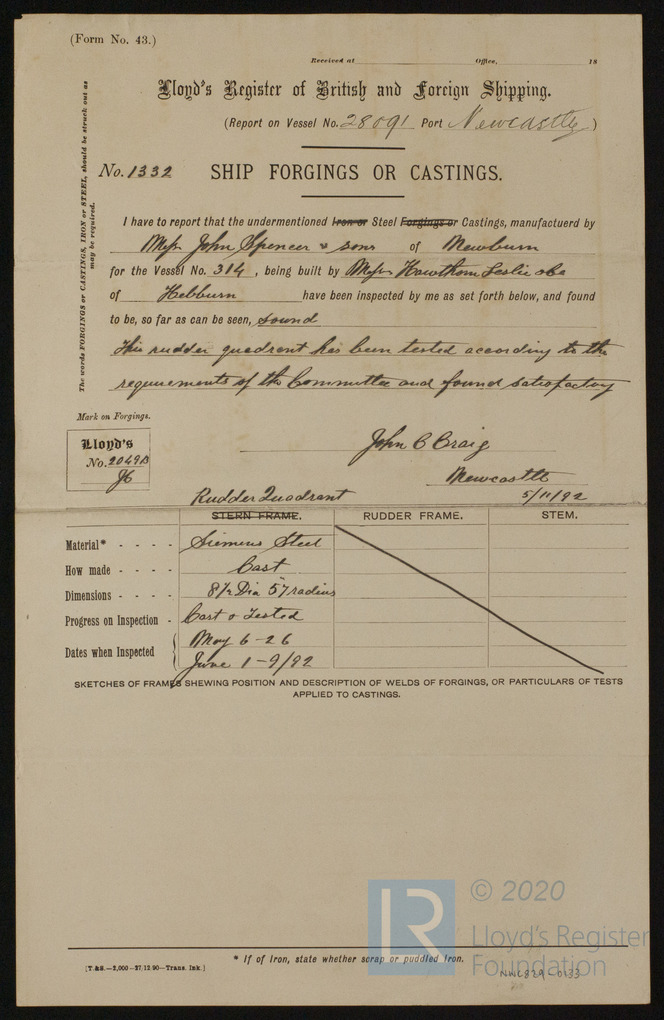 (Form No. 43.)
Received at Office, 18
Lloyd's Register of British and Foreign Shipping.
(Report on Vessel No. 28091 Port Newcastle)
The words FORGINGS or CASTINGS, IRON or STEEL, should be struck out as
may be required.
No. 1332 SHIP FORGINGS OR CASTINGS.
I have to report that the undermentioned Iron or Steel Forgings or Castings, manufactuerd by
Messrs John Spencer & sons of Newburn
for the Vessel No. 314, being built by Messrs Hawthorn Leslie & Co
of Hebburn have been inspected by me as set forth below, and found
to be, so far as can be seen, sound
This rudder quadrant has been tested according to the
requirements of the Committee and found satisfactory
Mark on Forgings.
Lloyd's
No. 2049B
John C Craig
Newcastle
5/11/92
Rudder Quadrant
STERN FRAME. RUDDER FRAME. STEM.
Material* - - - - Siemens Steel
How made - - - - Cast
Dimensions - - - - 8 1/2 Dia 57" radius
Progress on Inspection - Cast & Tested
Dates when Inspected { May 6-26
June 1-9/92
SKETCHES OF FRAMES SHEWING POSITION AND DESCRIPTION OF WELDS OF FORGINGS, OR PARTICULARS OF TESTS
APPLIED TO CASTINGS.
LR © 2020
Lloyd's Register
Foundation
* If of Iron, state whether scrap or puddled Iron.
[T.&S.—2,000—27/12/90—Trans. Ink.]
NWC829-0133